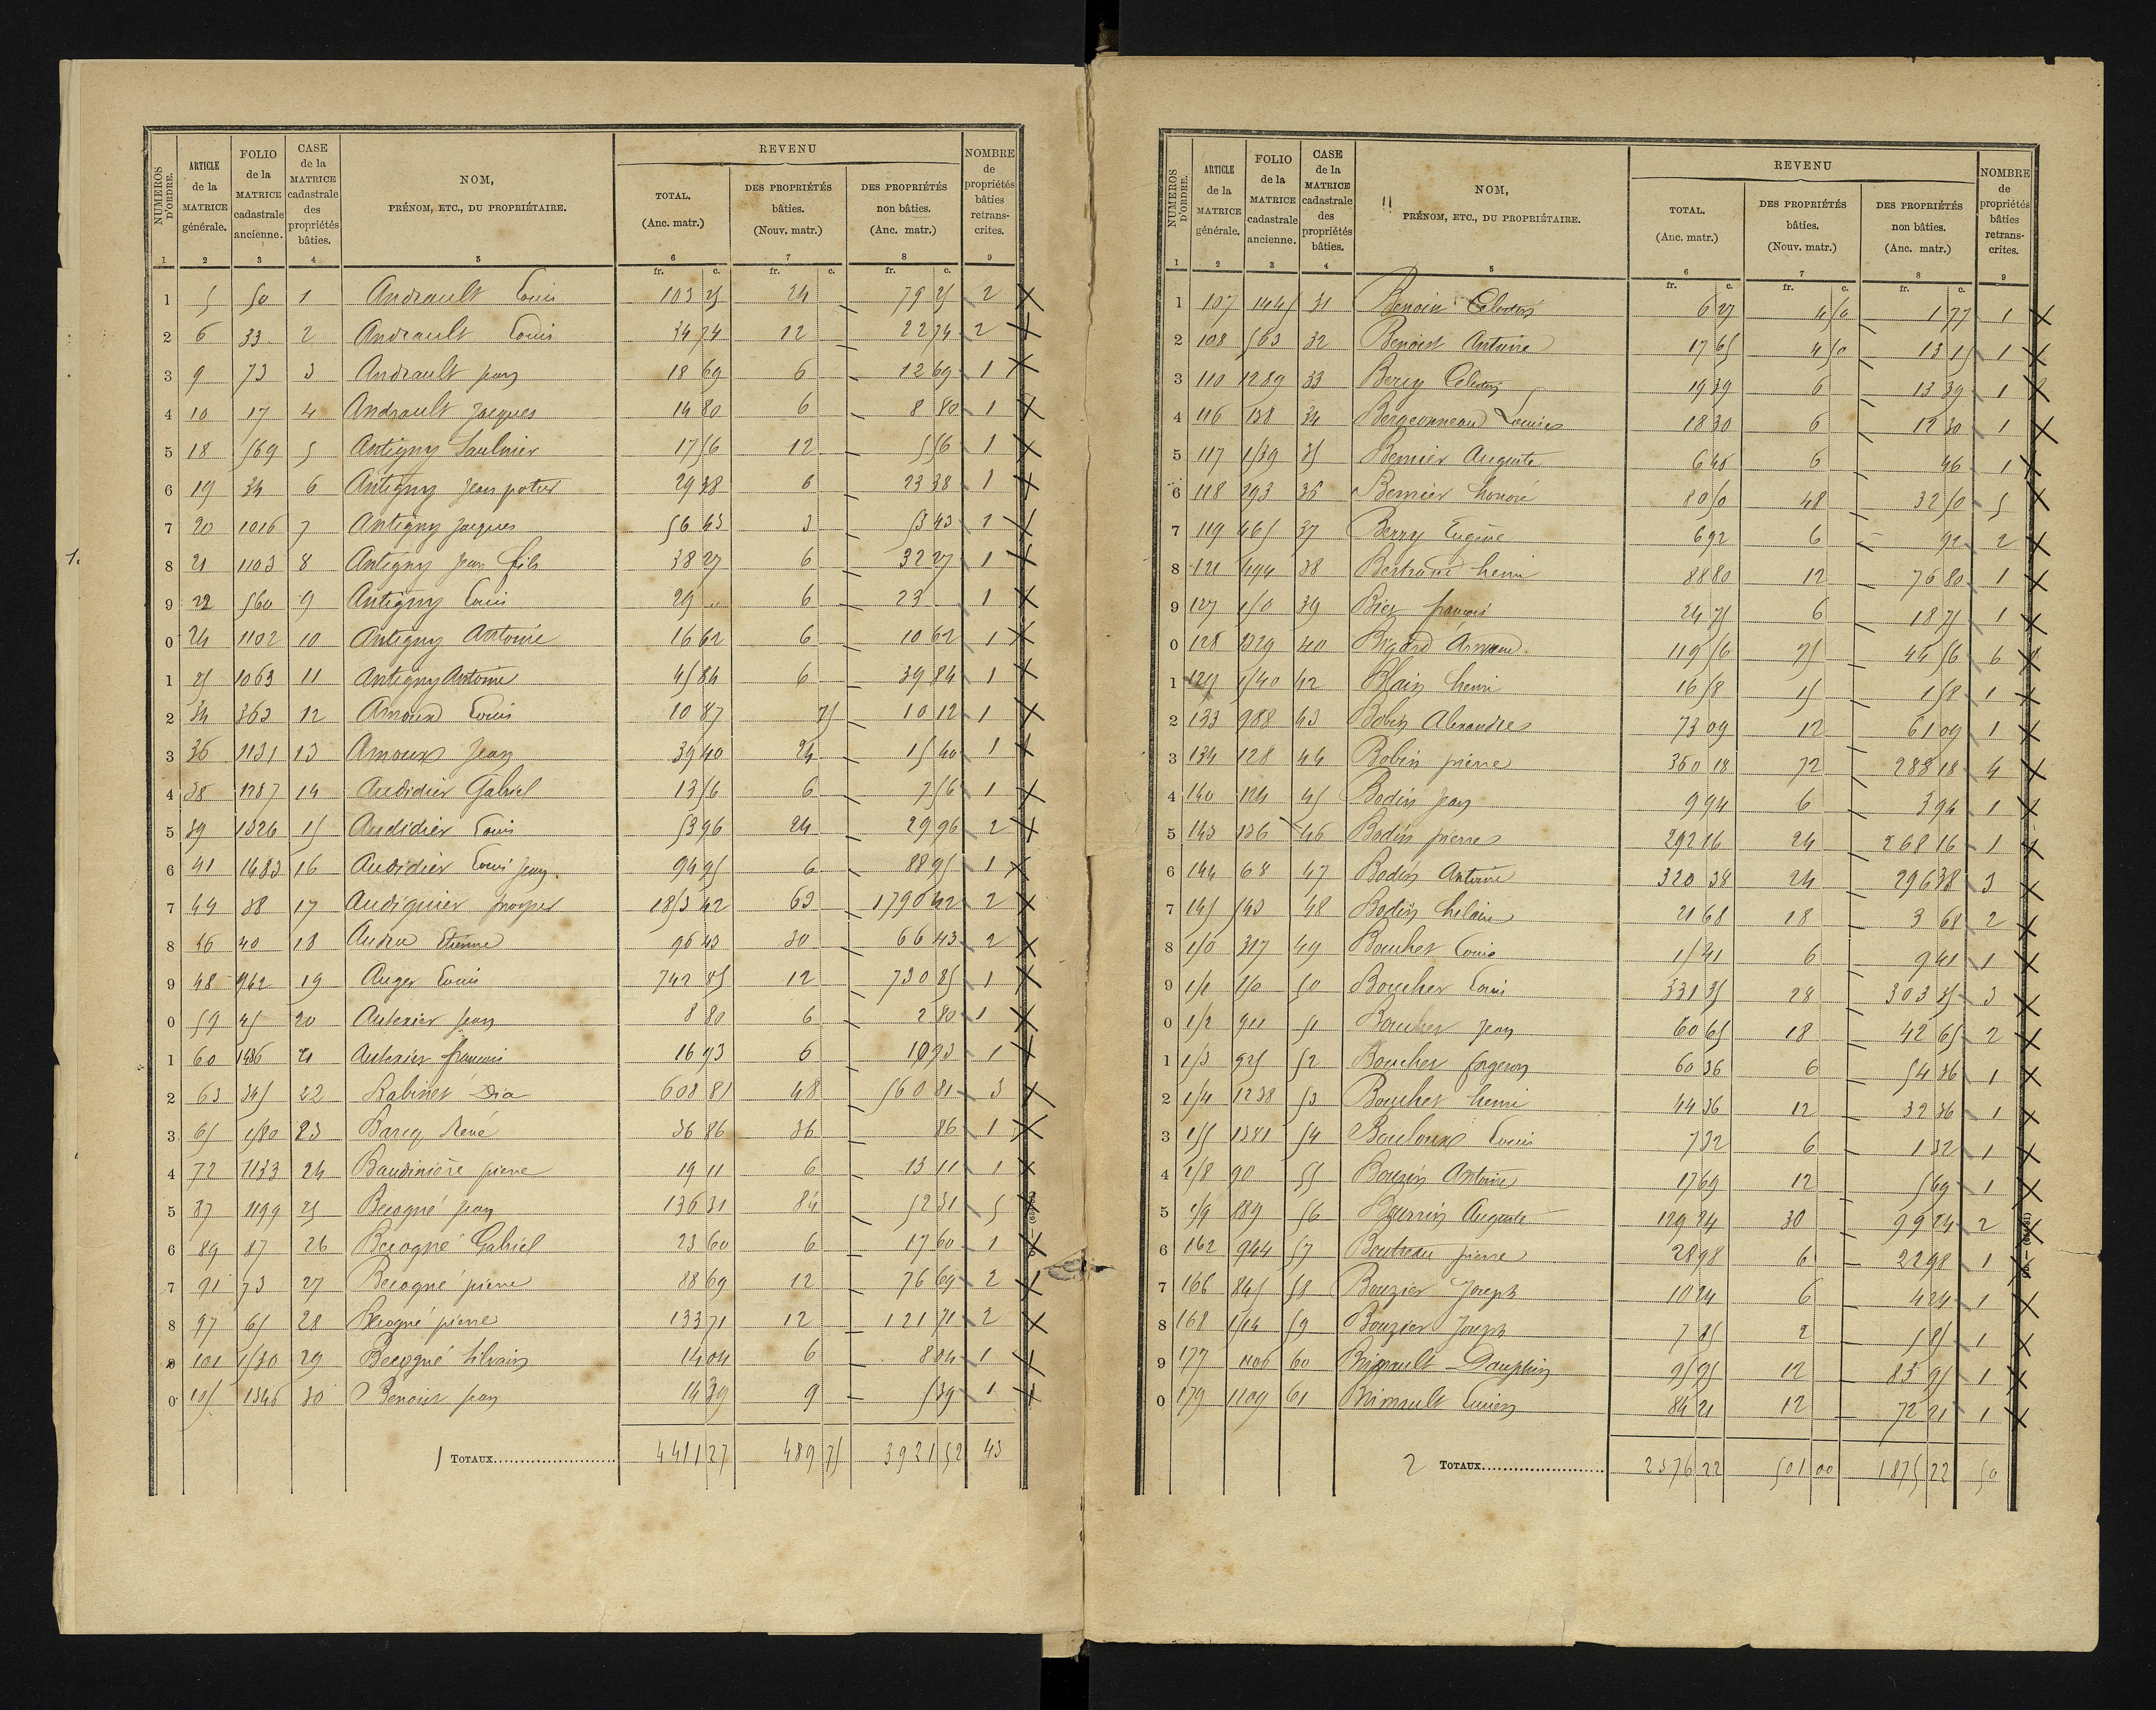 NUMÉROS D'ORDRE. | ARTICLE de la MATRICE générale. | FOLIO de la MATRICE cadastrale ancienne. | CASE de la MATRICE cadastrale des propriétés bâties. | NOM, PRÉNOM, ETC., DU PROPRIÉTAIRE. | REVENU TOTAL. (Anc. matr.) | DES PROPRIÉTÉS bâties. (Nouv. matr.) | DES PROPRIÉTÉS non bâties. (Anc. matr.) | NOMBRE de propriétés bâties retranscrites.
1 2 3 4 5 6 7 8 9
fr. c. fr. c. fr. c.
1 5 50 1 Andrault Louis 103 25 24 — 79 25 2 X
2 6 33 2 Andrault Louis 34 74 12 — 22 74 2 X
3 9 73 3 Andrault jean 18 69 6 — 12 69 1 X
4 10 17 4 Andrault Jacques 14 80 6 — 8 80 1 X
5 18 569 5 Antigny Saulnier 17 56 12 — 5 56 1 X
6 19 34 6 Antigny Jean 29 38 6 — 23 38 1 X
7 20 1016 7 Antigny Jacques 56 43 3 — 53 43 1 X
8 21 1103 8 Antigny Jean fils 38 27 6 — 32 27 1 X
9 22 560 9 Antigny Louis 29 " 6 — 23 1 X
0 24 1102 10 Antigny Antoine 16 62 6 — 10 62 1 X
1 25 1063 11 Antigny Antoine 45 84 6 — 39 84 1 X
2 34 363 12 Arnoux Louis 10 87 75 — 10 12 1 X
3 36 1131 13 Arnoux Jean 39 40 24 — 15 40 1 X
4 38 1287 14 Audidier Gabriel 13 56 6 — 7 56 1 X
5 39 1326 15 Audidier Louis 53 96 24 — 29 96 2 X
6 41 1483 16 Audidier Louis Jean. 94 95 6 — 88 95 1 X
7 44 38 17 Audiguier prosper 1853 42 63 — 1790 42 2 X
8 46 40 18 Audru Etienne 96 43 30 — 66 43 2 X
9 48 962 19 Auger Louis 742 85 12 — 730 85 1 X
0 59 45 20 Autexier Jean 8 80 6 — 2 80 1 X
1 60 1436 21 Autexier francois 16 93 6 — 10 93 1 X
2 63 345 22 608 81 48 — 560 81 3 X
3 65 1580 23 Barcq René 36 86 36 — 86 1 X
4 72 1133 24 Baudinière pierre 19 11 6 — 13 11 1 X
5 87 1199 25 Becogné jean 136 31 84 — 52 31 5 X
6 89 87 26 Becogné Gabriel 23 60 6 — 17 60 1 X
7 91 73 27 Becogné pierre 88 69 12 — 76 69 2 X
8 97 65 28 Becogné pierre 133 71 12 — 121 71 2 X
9 101 1530 29 Becogné Silvain 14 04 6 — 8 04 1 X
0 105 1346 30 Benoist jean 14 39 9 — 5 39 1 X
1 TOTAUX 4411 27 489 75 3921 52 43
NUMÉROS D'ORDRE. | ARTICLE de la MATRICE générale. | FOLIO de la MATRICE cadastrale ancienne. | CASE de la MATRICE cadastrale des propriétés bâties. | NOM, PRÉNOM, ETC., DU PROPRIÉTAIRE. | REVENU TOTAL. (Anc. matr.) | DES PROPRIÉTÉS bâties. (Nouv. matr.) | DES PROPRIÉTÉS non bâties. (Anc. matr.) | NOMBRE de propriétés bâties retranscrites.
1 2 3 4 5 6 7 8 9
fr. c. fr. c. fr. c.
1 107 1445 31 Benoin Celestin 6 27 4 50 — 1 77 1 X
2 108 563 32 Benoist Antoine 17 65 4 50 — 13 15 1 X
3 110 1289 33 19 39 6 — 13 39 1 X
4 116 138 34 Bergeonneau Louis 18 30 6 — 12 30 1 X
5 117 1539 35 Bernier Auguste 6 46 6 — 46 1 X
6 118 293 36 Bernier honoré 80 50 48 — 32 50 5 X
7 119 465 37 Berry Eugène 6 92 6 — 92 2 X
8 121 494 38 Bertrand henri 88 80 12 — 76 80 1 X
9 127 150 39 Biez francois 24 75 6 — 18 75 1 X
0 128 1329 40 Bigard Armand 119 56 75 — 44 56 6 X
1 129 1540 42 Blain henri 16 58 15 — 1 58 1 X
2 133 988 43 Bobin Alexandre 73 09 12 — 61 09 1 X
3 134 128 44 Bobin pierre 360 18 72 — 288 18 4 X
4 140 124 45 Bodin Jean 9 94 6 — 3 94 1 X
5 143 136 46 Bodin pierre 292 16 24 — 268 16 1 X
6 144 68 47 Bodin Antoine 320 38 24 — 296 38 3 X
7 145 543 48 Bodin hilaire 21 68 18 — 3 68 2 X
8 150 317 49 Boucher Louis 15 41 6 — 9 41 1 X
9 151 150 50 Boucher Louis 331 35 28 — 303 35 3 X
0 152 911 51 Boucher Jean 60 65 18 — 42 65 2 X
1 153 925 52 Boucher forgeron 60 36 6 — 54 36 1 X
2 154 1238 53 Boucher henri 44 36 12 — 32 36 1 X
3 155 1381 54 Bouloux Louis 7 32 6 — 1 32 1 X
4 158 90 55 Bouzin Antoine 17 69 12 — 5 69 1 X
5 159 889 56 Bourrin Auguste 129 24 30 — 99 24 2 X
6 162 944 57 Boutreau pierre 28 98 6 — 22 98 1 X
7 166 845 58 Bouzier Joseph 10 24 6 — 4 24 1 X
8 168 1514 59 Bouzier Joseph 7 85 2 — 5 85 1 X
9 177 1106 60 Brinault Dauphin 95 95 12 — 83 95 1 X
0 179 1109 61 Brinault Lucien 84 21 12 — 72 21 1 X
2 TOTAUX 2376 22 501 00 1875 22 50